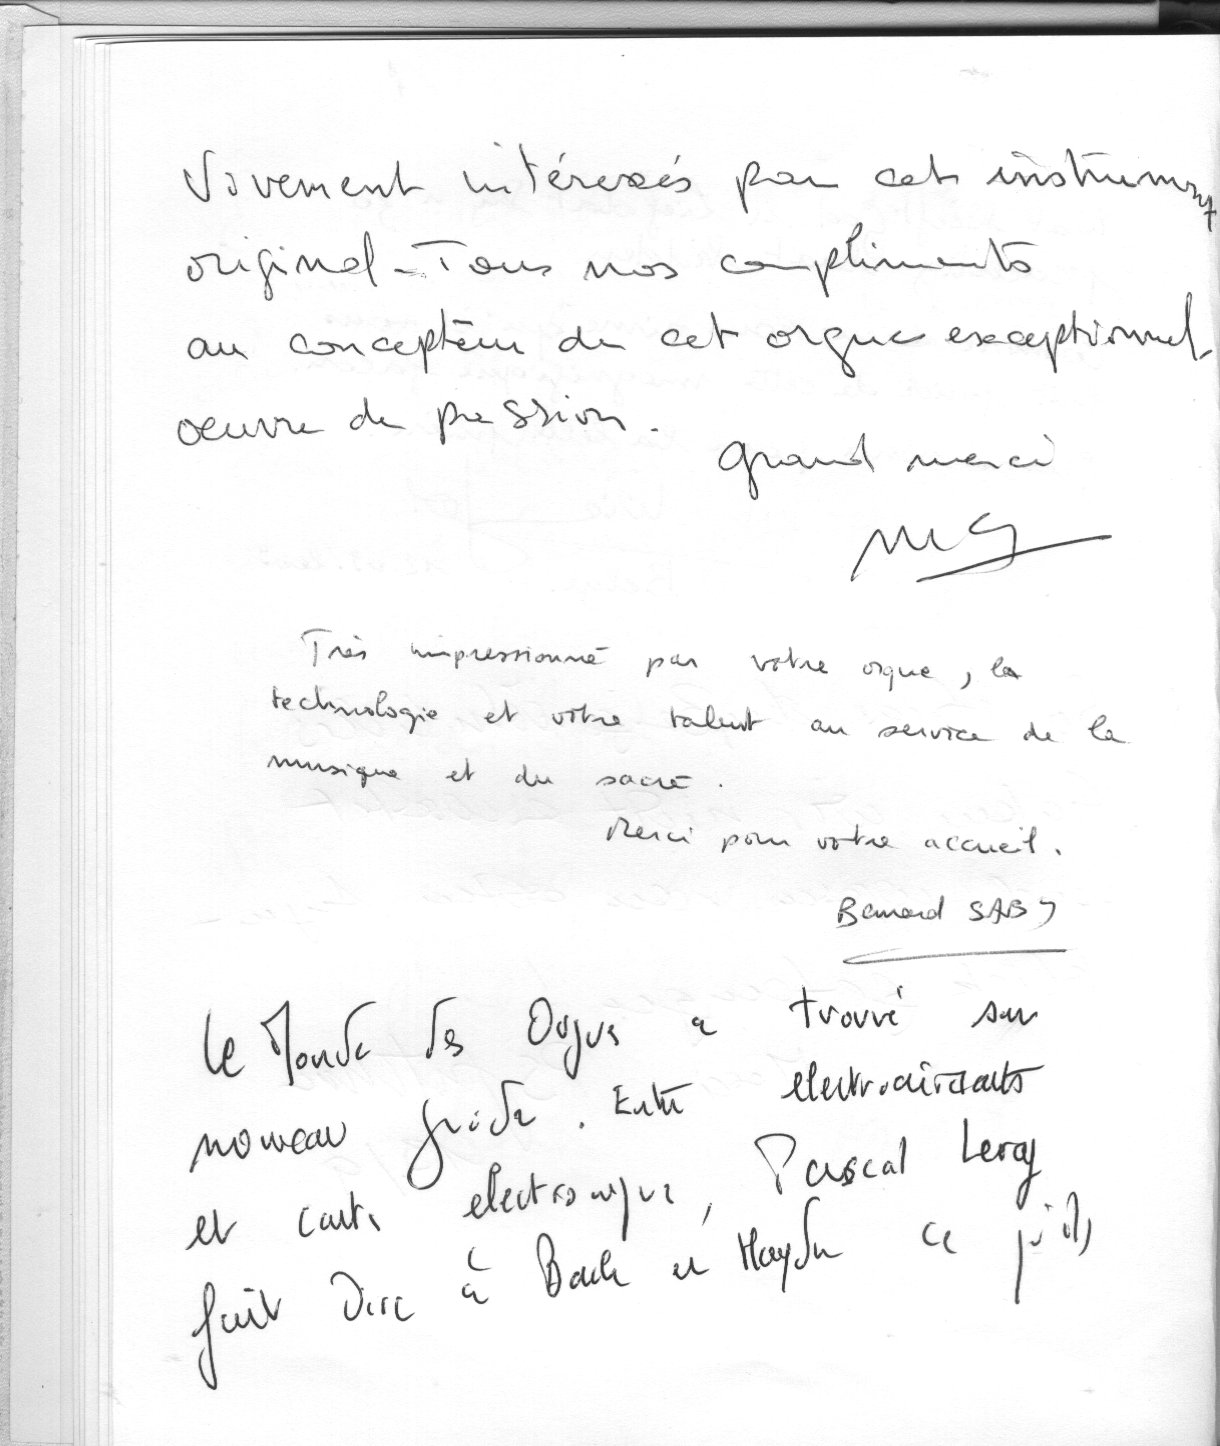 Vivement intéressés par cet instrument
original - Tous nos compliments
au concepteur de cet orgue exceptionnel
oeuvre de passion.
Grand merci
Très impressionné par votre orgue, la
technologie et votre talent au service de la
musique et du sacré.
Merci pour votre accueil.
Bernard SABY
Le Monde des Orgues a trouvé son
nouveau guide. Entre electroaimants
et carte electronique, Pascal Leroy
fait dire à Bach et Haydn ce qu'ils